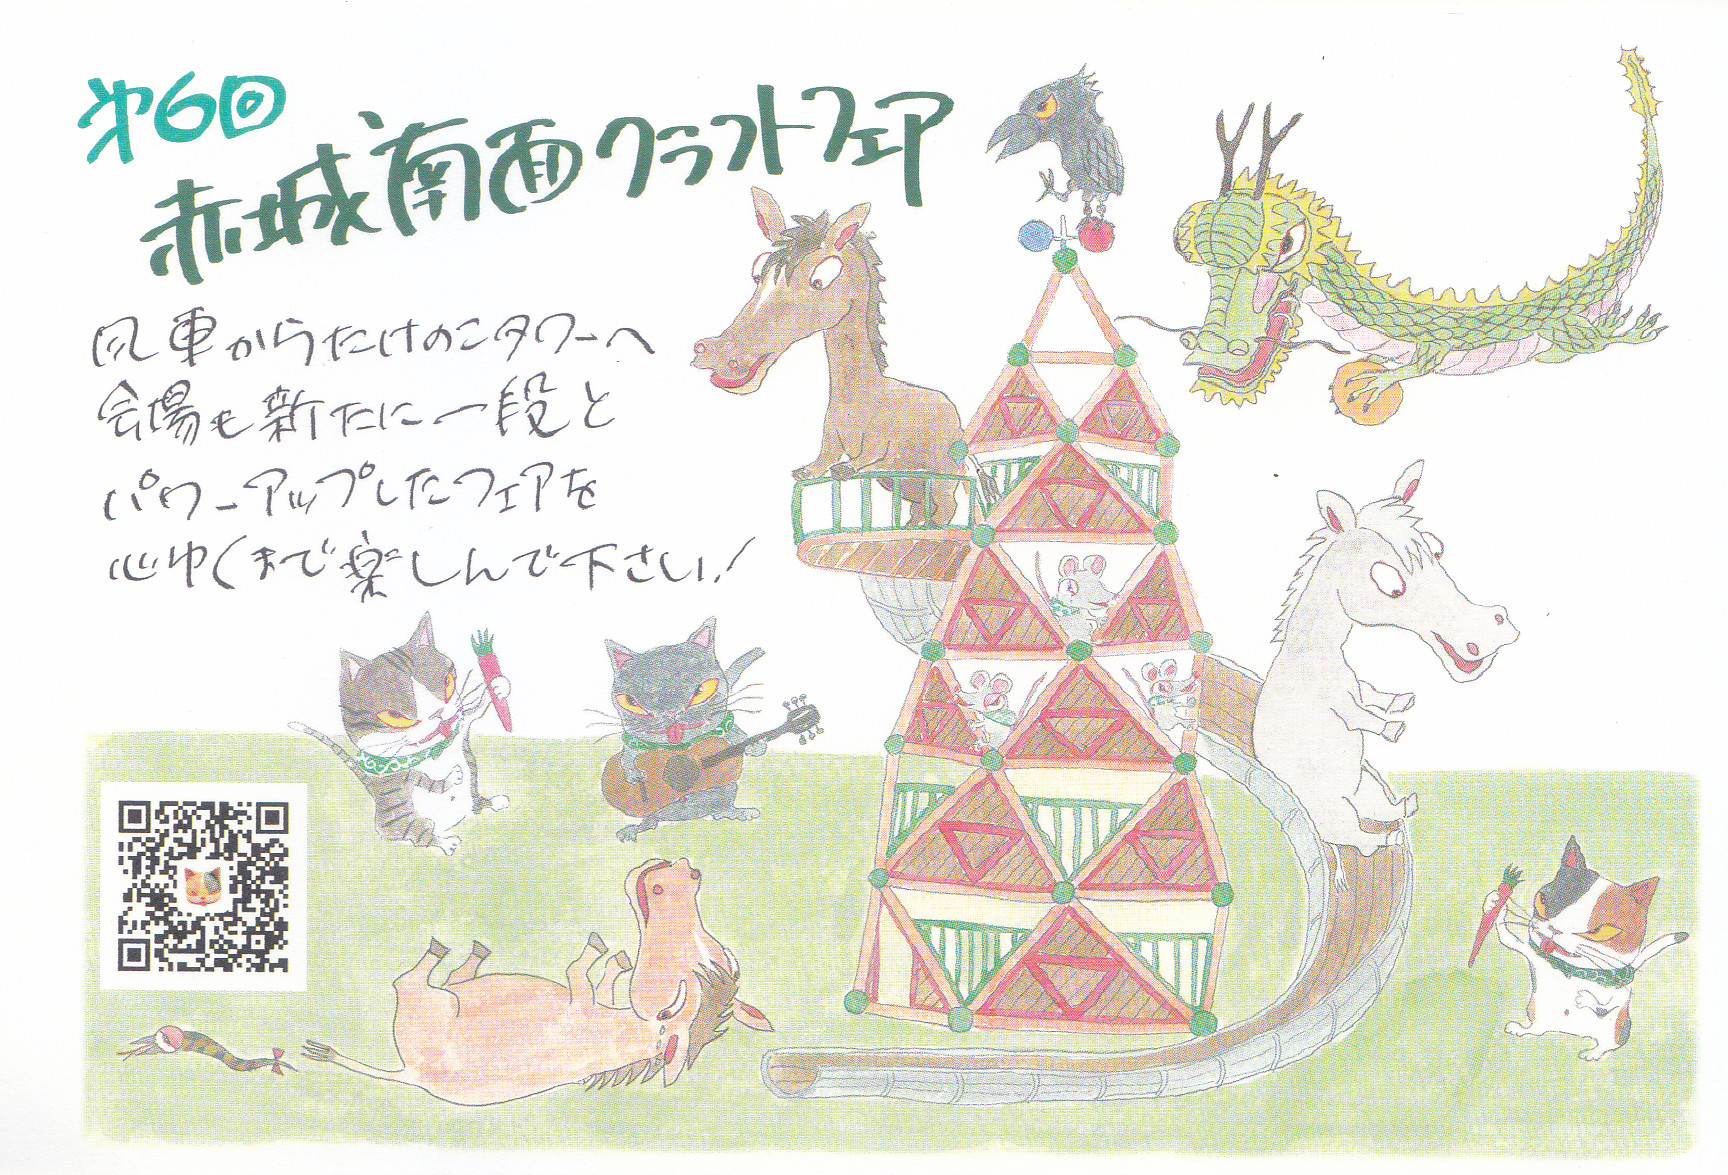 第6回
赤城南面クラフトフェア
風車からたけのこタワーへ
会場も新たに一段と
パワーアップしたフェアを
心ゆくまで楽しんで下さい!